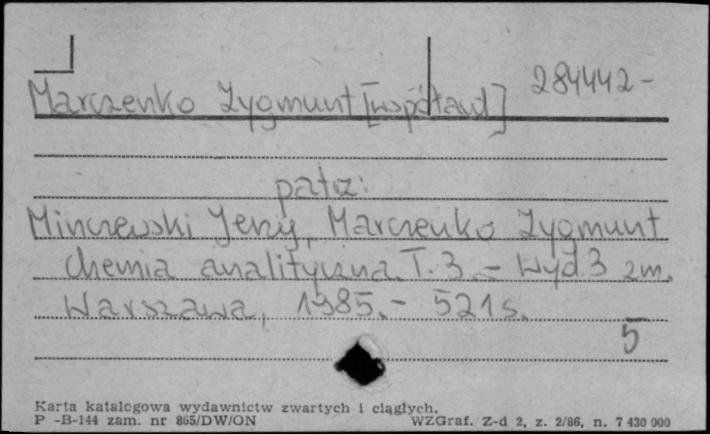 284442-
Marczenko Zygmunt [współaut]
patrz:
Minczewski Jerzy, Marczenko Zygmunt
Chemia analityczna. T. 3. - Wyd 3 zm.
Warszawa, 1985. - 521 s.
5
Karta katalogowa wydawnictw zwartych i ciągłych.
P -B-144 zam. nr 865/DW/ON WZGraf. Z-d 2, z. 2/86, n. 7 430 000